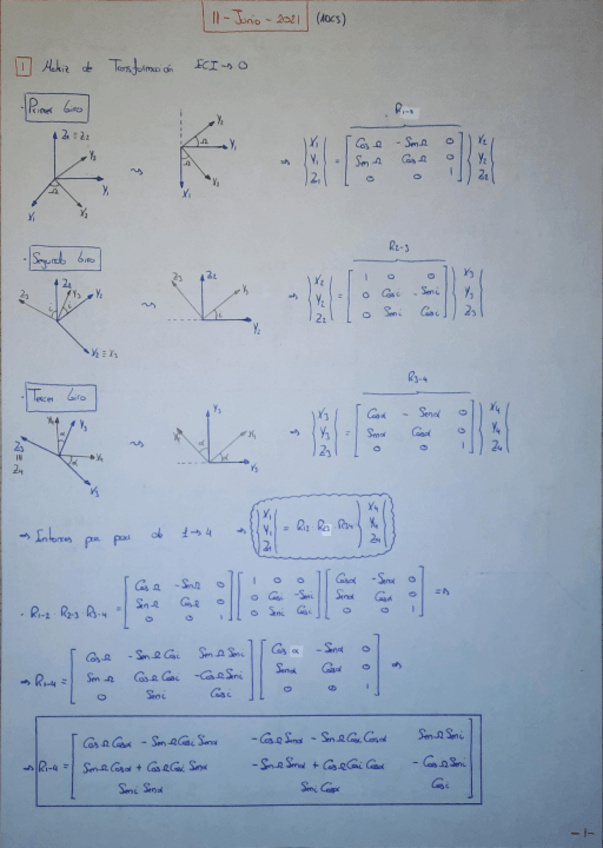 11 - Junio - 2021 (ADCS)
1 Matriz de Transformación ECI → O
· Primer Giro
Z₁ ≡ Z₂ Y₂ Y₁ X₂ X₁ Ω
Y₂ Y₁ X₂ X₁ Ω Ω
R₁₋₂
⇒ {X₁ Y₁ Z₁} = [Cos Ω - Sen Ω 0
Sen Ω Cos Ω 0
0 0 1] {X₂ Y₂ Z₂}
· Segundo Giro
Z₃ Z₂ Y₃ Y₂ i i X₂ ≡ X₃
Z₃ Z₂ Y₃ Y₂ i
R₂₋₃
⇒ {X₂ Y₂ Z₂} = [1 0 0
0 Cos i - Sen i
0 Sen i Cos i] {X₃ Y₃ Z₃}
· Tercer Giro
Y₄ Y₃ Z₃ ≡ Z₄ X₄ X₃ α α
Y₄ Y₃ X₄ X₃ α α
R₃₋₄
⇒ {X₃ Y₃ Z₃} = [Cos α - Sen α 0
Sen α Cos α 0
0 0 1] {X₄ Y₄ Z₄}
pasar de 1 → 4 ⇒ {X₁ Y₁ Z₁} = R₁₂ · R₂₃ · R₃₄ {X₄ Y₄ Z₄}
· R₁₋₂ · R₂₋₃ · R₃₋₄ = [Cos Ω - Sen Ω 0
Sen Ω Cos Ω 0
0 0 1] [1 0 0
0 Cos i - Sen i
0 Sen i Cos i] [Cos α - Sen α 0
Sen α Cos α 0
0 0 1] ⇒
⇒ R₁₋₄ = [Cos Ω - Sen Ω Cos i Sen Ω Sen i
Sen Ω Cos Ω Cos i - Cos Ω Sen i
0 Sen i Cos i] [Cos α - Sen α 0
Sen α Cos α 0
0 0 1] ⇒
⇒ R₁₋₄ = [Cos Ω Cos α - Sen Ω Cos i Sen α - Cos Ω Sen α - Sen Ω Cos i Cos α Sen Ω Sen i
Sen Ω Cos α + Cos Ω Cos i Sen α - Sen Ω Sen α + Cos Ω Cos i Cos α - Cos Ω Sen i
Sen i Sen α Sen i Cos α Cos i]
- 1 -